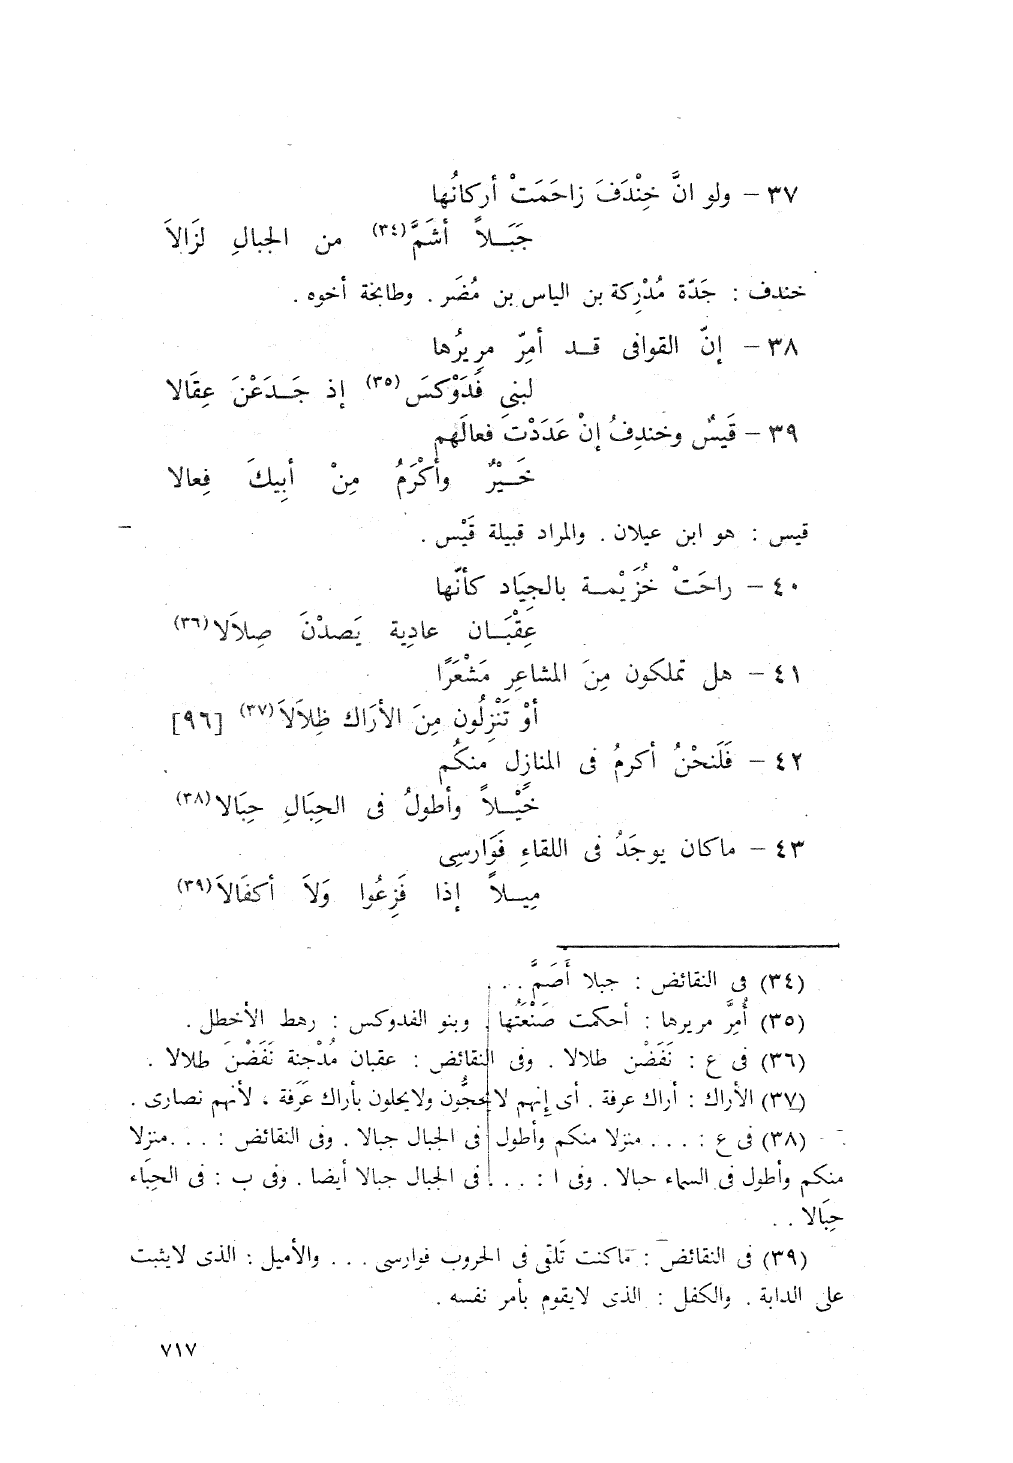 ٣٧ – ولو انَّ خِنْدَفَ زاحَمَتْ أركانُها
جَبَـلاً أشَمَّ(٣٤) من الجبالِ لزَالاَ
خندف : جَدّة مُدْرِكة بن الياس بن مُضَر . وطابخة أخوه .
٣٨ – إنّ القوافى قـد أمِرّ مرِيرُها
لبنى فَدَوْكسَ(٣٥) إذ جَـدَعْنَ عِقَالا
٣٩ – قَيسٌ وخندِفُ إنْ عَدَدْتَ فعالَهم
خَـيْرٌ وأكْرَمُ مِنْ أبِيكَ فِعالا
قيس : هو ابن عيلان . والمراد قبيلة قَيْس .
٤٠ – راحَتْ خُزَيْمـة بالجِيَاد كأنّها
عِقْبَـان عادِية يَصدْنَ صِلاَلا(٣٦)
٤١ – هل تملكون مِنَ المشاعِر مَشْعَرًا
أوْ تَنْزِلُون مِنَ الأرَاك ظِلاَلاَ(٣٧) [٩٦]
٤٢ – فَلَنحْنُ أكرمُ فى المنازِل منكُم
خَيْـلاً وأطولُ فى الحِبَالِ حِبَالا(٣٨)
٤٣ – ماكان يوجَدُ فى اللقاءِ فَوَارسِى
مِيـلاً إذا فَزِعُوا وَلاَ أكفَالاَ(٣٩)
(٣٤) فى النقائض : جبلا أَصَمَّ . . .
(٣٥) أُمِرَّ مريرها : أحكمت صَنْعَتُها . وبنو الفدوكس : رهط الأخطل .
(٣٦) فى ع : نَفَضْن طلالا . وفى النقائض : عقبان مُدْجنة نَفَضْنَ طلالا .
(٣٧) الأراك : أراك عرفة . أى إنهم لايحجُّون ولايحلون بأراك عَرَفة ، لأنهم نصارى .
(٣٨) فى ع : . . . منزلا منكم وأطول فى الجبال جبالا . وفى النقائض : . . . منزلا
منكم وأطول فى السماء حبالا . وفى ا : . . . فى الجبال جبالا أيضا . وفى ب : فى الحِبَاء
حِبَالا . .
(٣٩) فى النقائض : ماكنت تَلقى فى الحروب فوارسى . . . والأميل : الذى لايثبت
على الدابة . والكفل : الذى لايقوم بأمر نفسه .
٧١٧